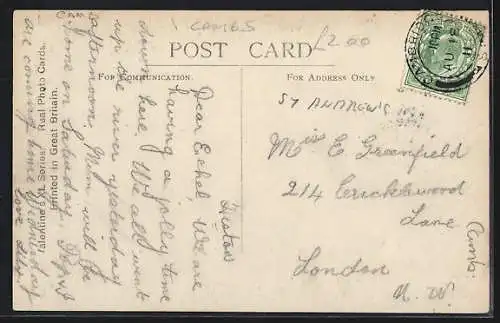 CAMBS
£2.00
POST CARD
FOR COMMUNICATION.
FOR ADDRESS ONLY
Valentine's Series.
Real Photo Cards.
Printed in Great Britain.
Histon
Dear Ethel, We are
having a jolly time
down here. We all went
up the river yesterday
afternoon. Mum will be
home on Saturday.
are coming home Wednesday
love
ST ANDREW'S
Miss E Greenfield
214 Cricklewood
Lane
London
N. W.
Camb.
AU 18
11